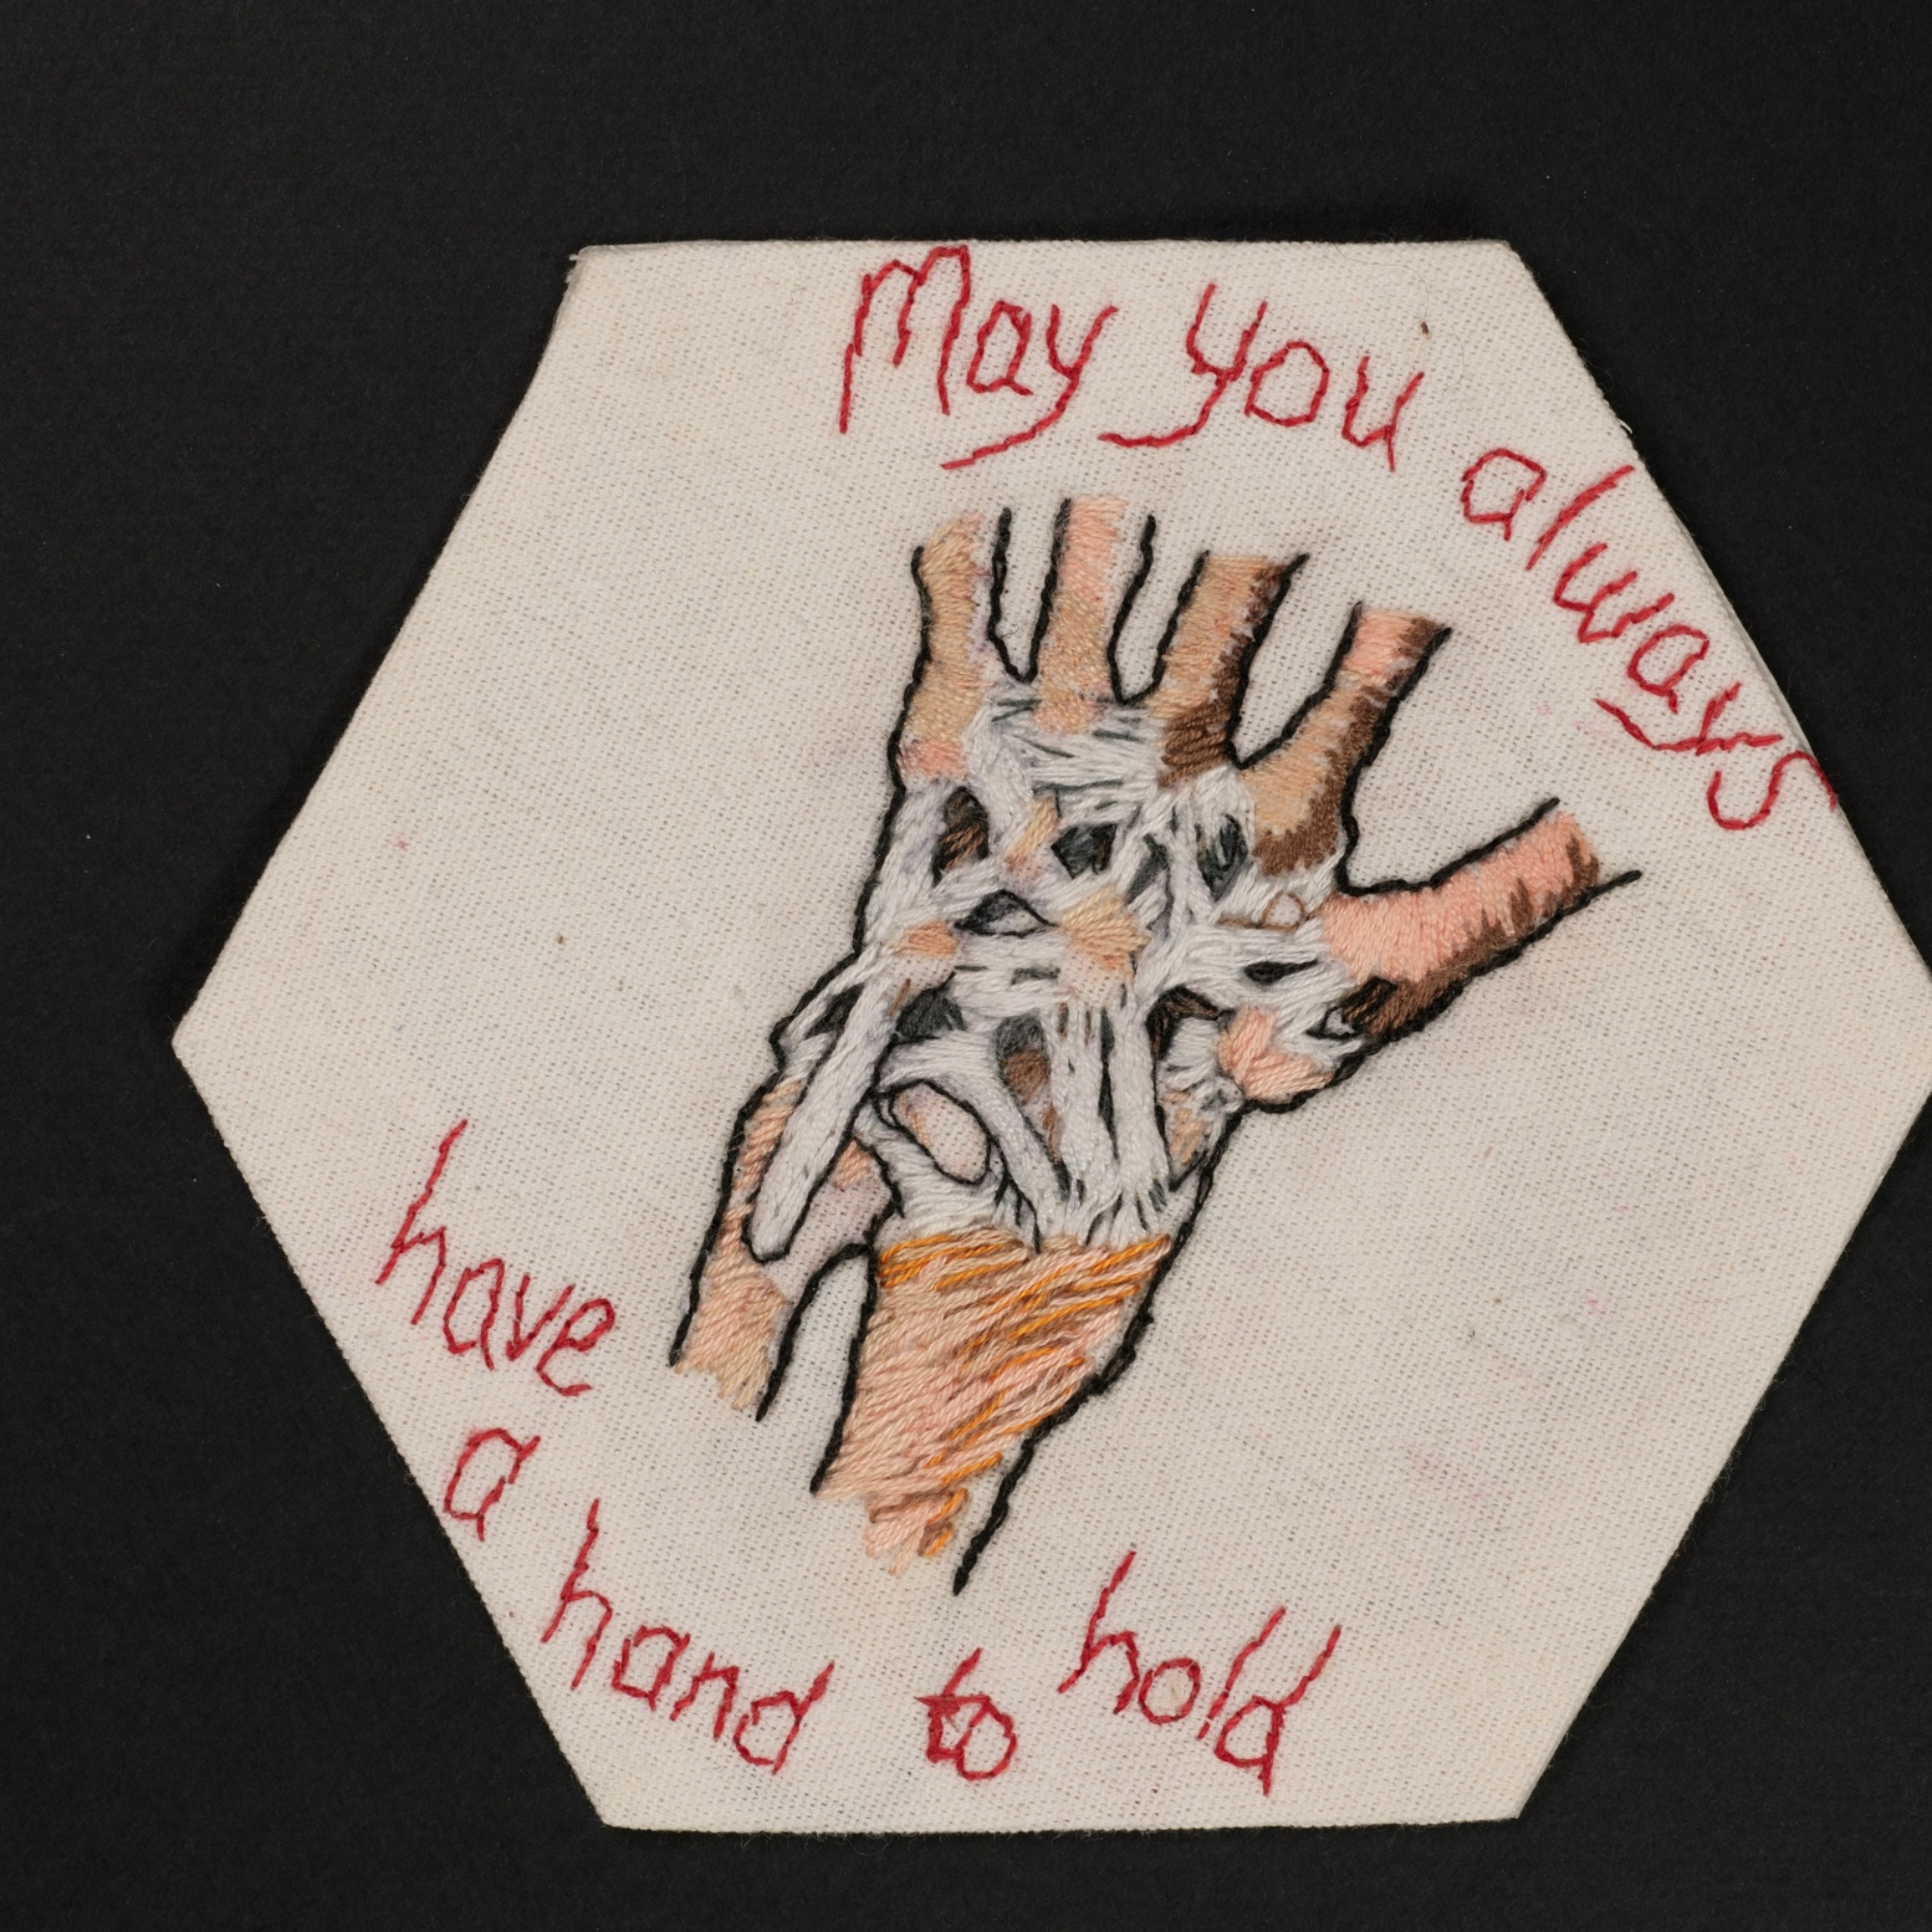 May you always
have
a
hand to hold